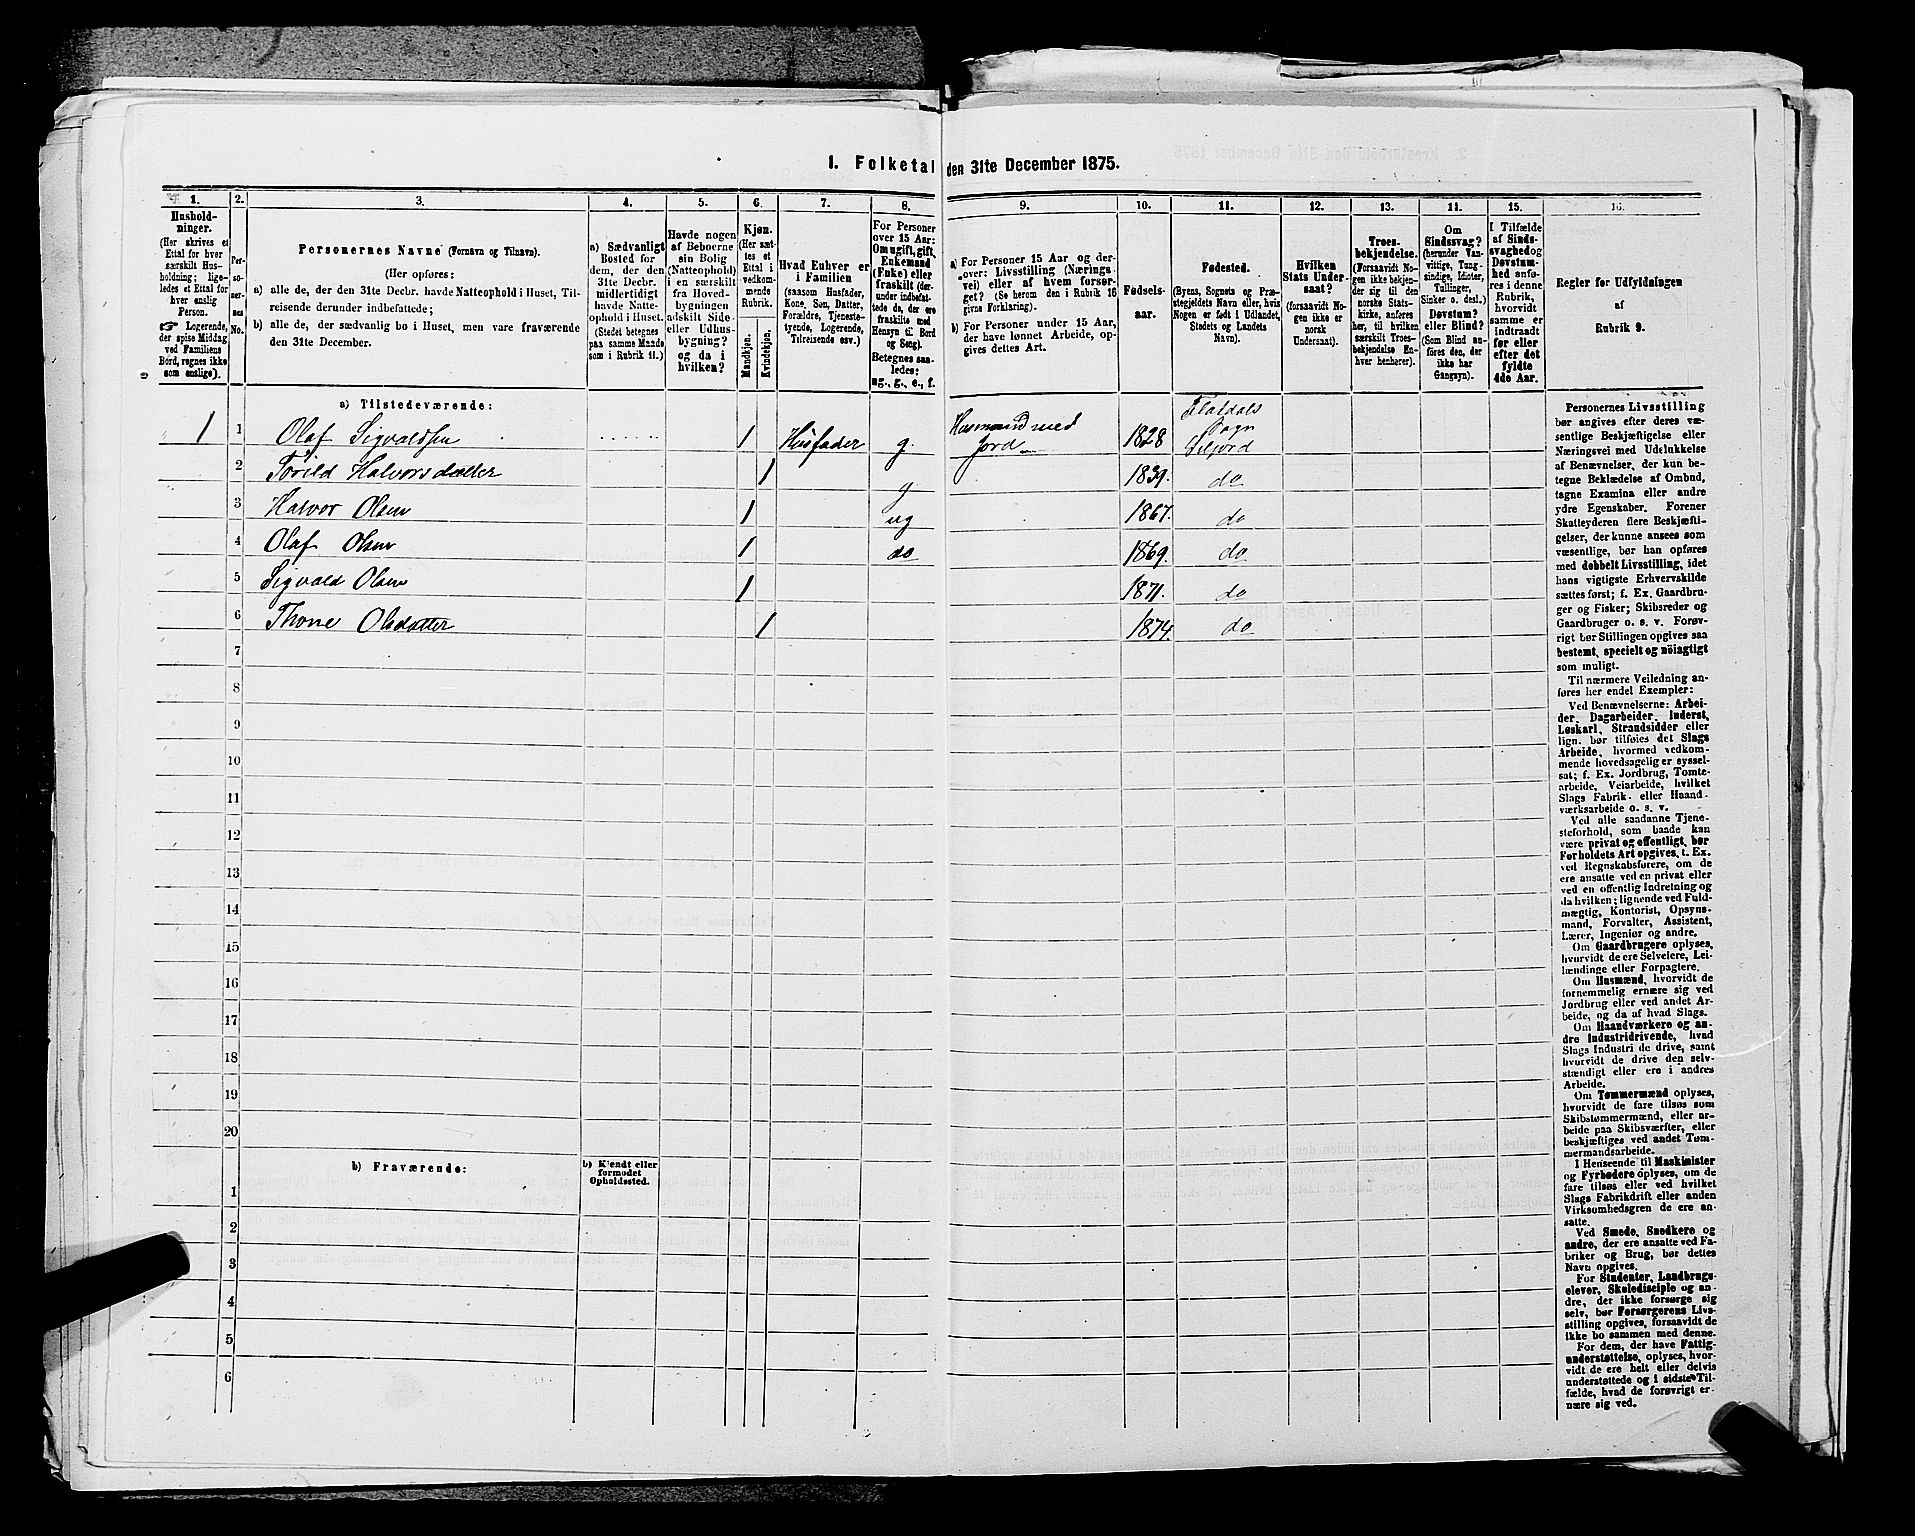 1. Folketal den 31te December 1875.
1.
Hushold-
ninger.
(Her skrives et
Ettal for hver
særskilt Hus-
holdning; lige-
ledes et Ettal for
hver enslig
Person.
☞ Logerende,
der spise Middag
ved Familiens
Bord, regnes ikke
som enslige).
2.
Per-
so-
ner-
nes
No.
3.
Personernes Navne (Fornavn og Tilnavn).
(Her opføres:
a) alle de, der den 31te Decbr. havde Natteophold i Huset, Til-
reisende derunder indbefattede;
b) alle de, der sædvanlig bo i Huset, men vare fraværende
den 31te December.
4.
a) Sædvanligt
Bosted for
dem, der den
31te Decbr.
midlertidigt
havde Natte-
ophold i Huset.
(Stedet betegnes
paa samme Maade
som i Rubrik 11.)
5.
Havde nogen
af Beboerne
sin Bolig
(Natteophold)
i en særskilt
fra Hoved-
bygningen
adskilt Side-
eller Udhus-
bygning?
og da i
hvilken?
6.
Kjøn.
(Her sæt-
tes et
Ettal i
vedkom-
mende
Rubrik.
Mandkjøn.
Kvindekjøn.
7.
Hvad Enhver er
i Familien
(saasom Husfader,
Kone, Søn, Datter,
Forældre, Tjeneste-
tyende, Logerende,
Tilreisende osv.)
8.
For Personer
over 15 Aar:
Om ugift, gift,
Enkemand
(Enke) eller
fraskilt (der-
under indbefat-
tede de, der ere
fraskilte med
Hensyn til Bord
og Seng).
Betegnes saa-
ledes:
ug., g., e., f.
9.
a) For Personer 15 Aar og der-
over: Livsstilling (Nærings-
vei) eller af hvem forsør-
get? (Se herom den i Rubrik 16
givne Forklaring).
b) For Personer under 15 Aar,
der have lønnet Arbeide, op-
gives dettes Art.
10.
Fødsels-
aar.
11.
Fødested.
(Byens, Sognets og Præ-
stegjeldets Navn eller, hvis
Nogen er født i Udlandet,
Stedets og Landets
Navn).
12.
Hvilken
Stats Under-
saat?
(forsaavidt No-
gen ikke er
norsk
Undersaat).
13.
Troes-
bekjendelse.
(Forsaavidt No-
gen ikke bekjen-
der sig til den
norske Stats-
kirke, anføres
her, til hvilken
særskilt Troes-
bekjendelse En-
hver henhører).
14.
Om
Sindssvag?
(herunder Van-
vittige, Tung-
sindige, Idioter,
Tullinger,
Sinker o. desl.)
Døvstum?
eller Blind?
(Som Blind an-
føres den, der
ikke har
Gangsyn).
15.
I Tilfælde
af Sinds-
svaghed og
Døvstum-
hed anfø-
res i denne
Rubrik,
hvorvidt
samme er
indtraadt
før eller
efter det
fyldte
4de Aar.
16.
Regler for Udfyldningen
af
Rubrik 9.
a) Tilstedeværende:
1 1 Olaf Sigvaldsen 1 Husfader g. Husmand med Jord 1828 Flatdals Sogn Siljord
2 Torild Halvorsdatter 1 g 1839. do
3 Halvor Olsen 1 ug 1867. do
4 Olaf Olsen 1 do 1869. do
5 Sigvald Olsen 1 1871. do
6 Thone Olsdatter 1 1874. do
7
8
9
10
11
12
13
14
15
16
17
18
19
20
b) Fraværende:
b) Kjendt eller
formodet
Opholdssted.
1
2
3
4
5
6
Personernes Livsstilling
bør angives efter deres væ-
sentlige Beskjæftigelse eller
Næringsvei med Udelukkelse
af Benævnelser, der kun be-
tegne Beklædelse af Ombud,
tagne Examina eller andre
ydre Egenskaber. Forener
Skatteyderen flere Beskjæfti-
gelser, der kunne ansees som
væsentlige, bør han opføres
med dobbelt Livsstilling, idet
hans vigtigste Erhvervskilde
sættes først; f. Ex. Gaardbru-
ger og Fisker; Skibsreder og
Gaardbruger o. s. v. Forøv-
rigt bør Stillingen opgives saa
bestemt, specielt og nöiagtigt
som muligt.
Til nærmere Veiledning an-
føres her endel Exempler:
Ved Benævnelserne: Arbei-
der, Dagarbeider, Inderst,
Løskarl, Strandsidder eller
lign. bør tilføies det Slags
Arbeide, hvormed vedkom-
mende hovedsagelig er syssel-
sat; f. Ex. Jordbrug, Tomte-
arbeide, Veiarbeide, hvilket
Slags Fabrik- eller Haand-
værksarbeide o. s. v.
Ved alle saadanne Tjene-
steforhold, som baade kan
være privat og offentligt, bør
Forholdets Art opgives, t. Ex.
ved Regnskabsførere, om de
ere ansatte ved en privat eller
ved en offentlig Indretning og
da hvilken; lignende ved Fuld-
mægtig, Kontorist, Opsyns-
mand, Forvalter, Assistent,
Lærer, Ingeniør og andre.
Om Gaardbrugere oplyses,
hvorvidt de ere Selveiere, Lei-
lændinge eller Forpagtere.
Om Husmænd, hvorvidt de
fornemmelig ernære sig ved
Jordbrug eller ved andet Ar-
beide, og da af hvad Slags.
Om Haandværkere og an-
dre Industridrivende, hvad
Slags Industri de drive, samt
hvorvidt de drive den selv-
stændigt eller ere i andres
Arbeide.
Om Tømmermænd oplyses,
hvorvidt de fare tilsøs som
Skibstømmermænd, eller ar-
beide paa Skibsværfter, eller
beskjæftiges ved andet Tøm-
mermandsarbeide.
I Henseende til Maskinister
og Fyrbødere oplyses, om de
fare tilsøs eller ved hvilket
Slags Fabrikdrift eller anden
Virksomhedsgren de ere an-
satte.
Ved Smede, Snedkere og
andre, der ere ansatte ved Fa-
briker og Brug, bør dettes
Navn opgives.
For Studenter, Landbrugs-
elever, Skoledisciple og an-
dre, der ikke forsørge sig
selv, bør Forsørgerens Livs-
stilling opgives, forsaavidt de
ikke bo sammen med denne.
For dem, der have Fattig-
understøttelse, oplyses, hvor-
vidt de ere helt eller delvis
understøttede og i sidste Til-
fælde, hvad de forøvrigt er-
nære sig ved.